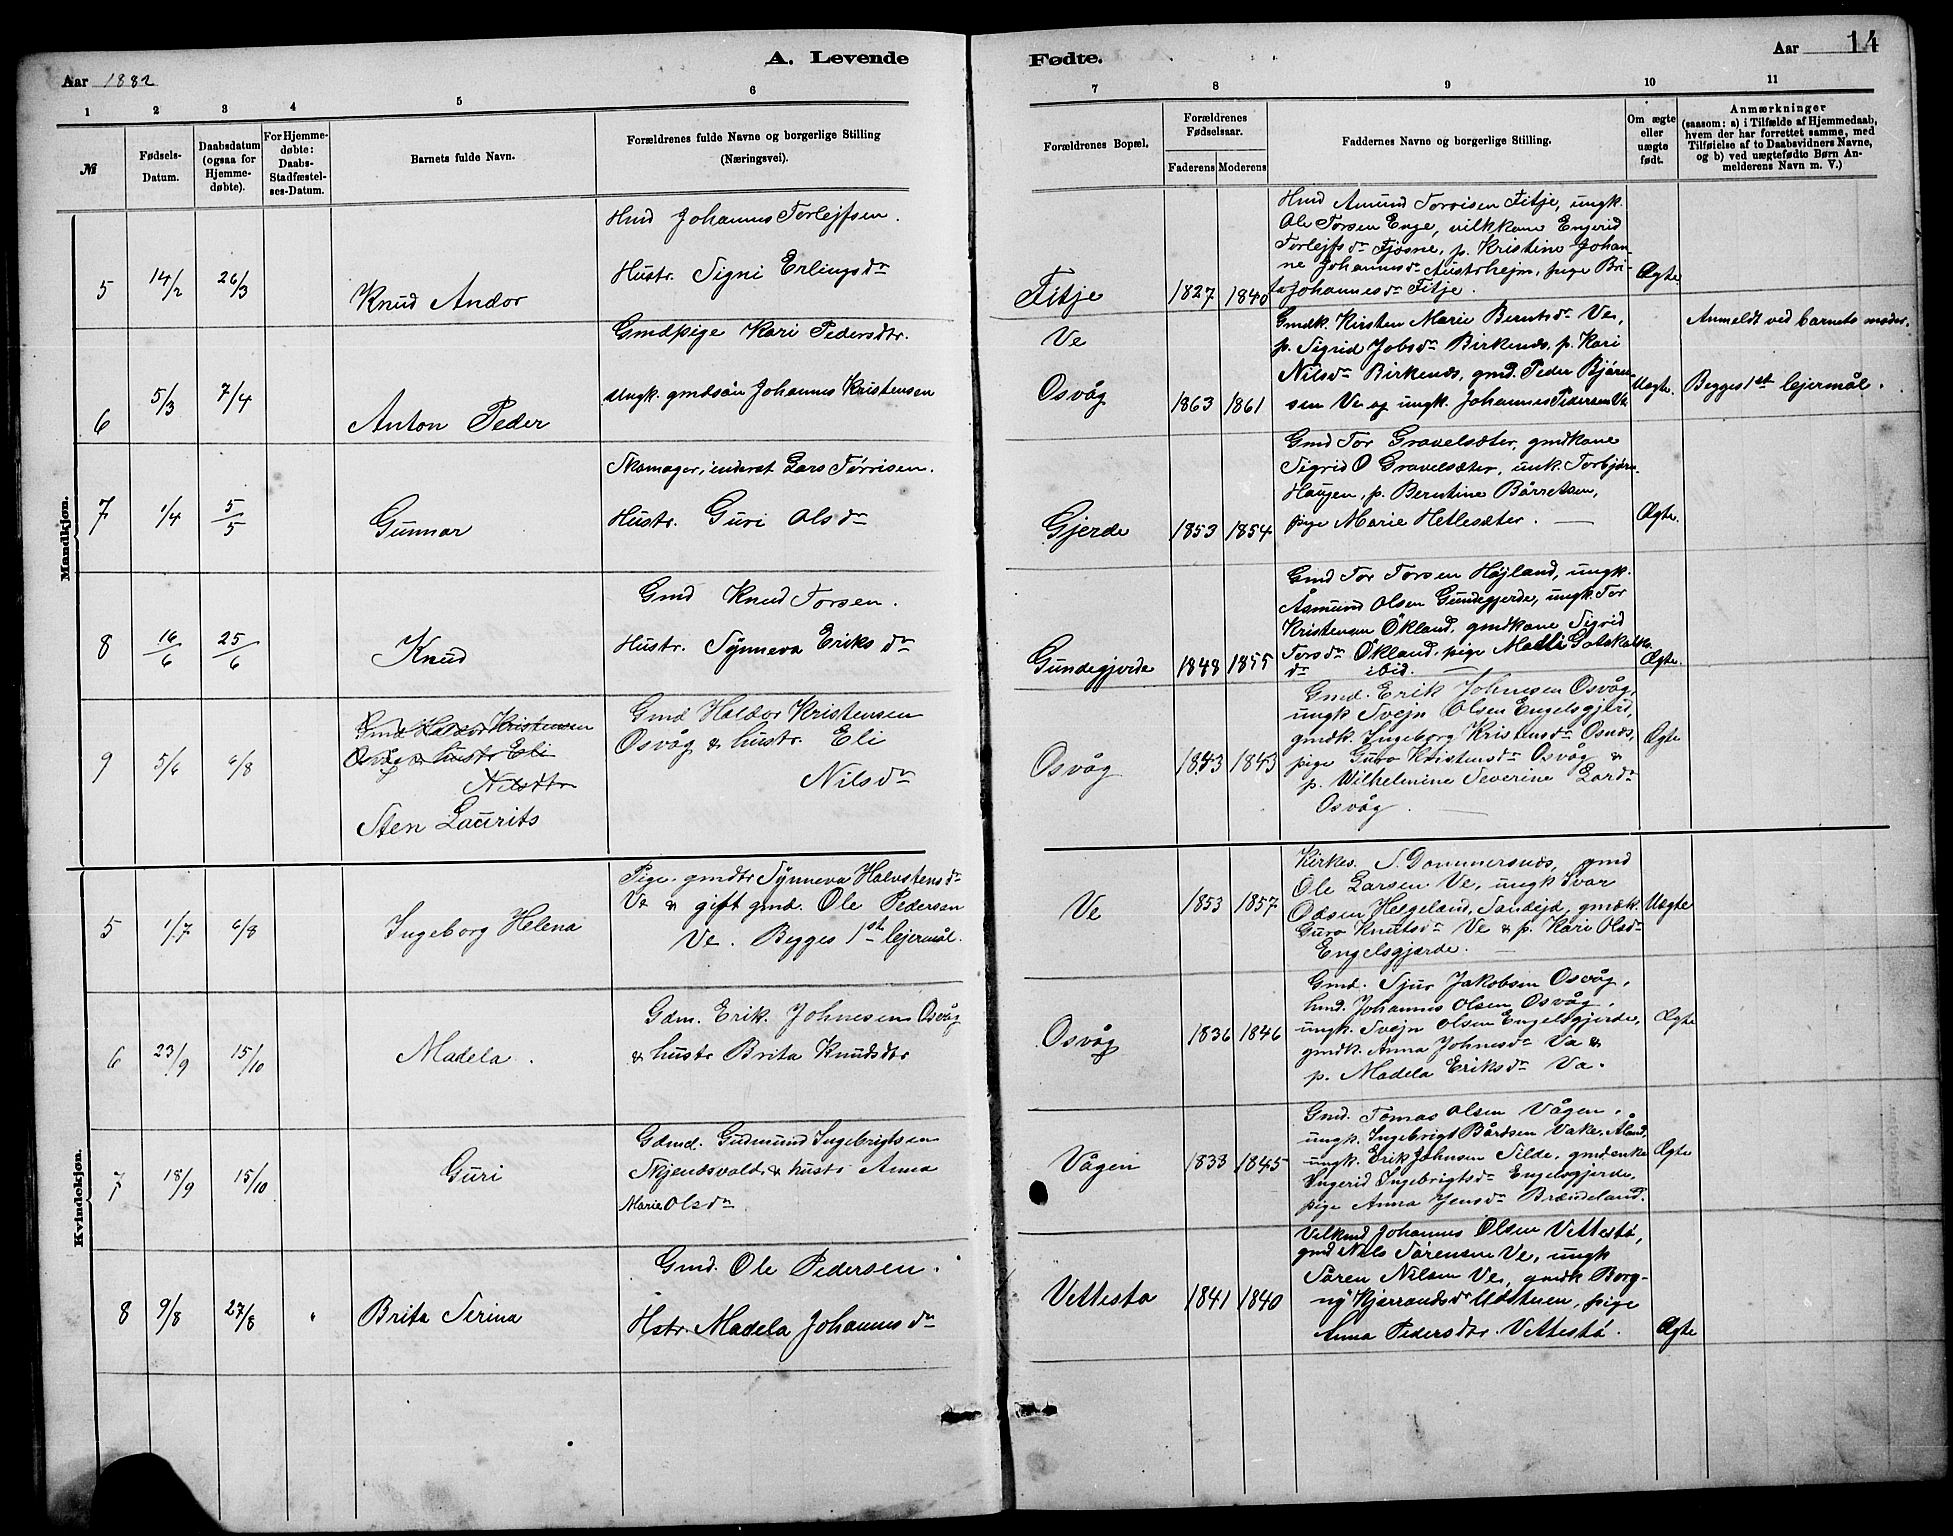 A. Levende
Aar 1882
1 2 3 4 5 6
№
Fødsels-
Datum.
Daabsdatum
(ogsaa for
Hjemme-
døbte).
For Hjemme-
døbte:
Daabs-
Stadfæstel-
ses-Datum.
Barnets fulde Navn.
Forældrenes fulde Navne og borgerlige Stilling
(Næringsvei).
Mandkjøn.
5 14/2 26/3 Knud Andor
Hmd Johannes Torlejfsen.
Hustr. Signi Erlingsdr
6 5/3 7/4 Anton Peder
Gmdpige Kari Pedersdtr.
Ungk. gmdsön Johannes Kristensen
7 1/4 5/5 Gunnar
Skomager, inderst Lars Törrisen.
Hustr. Guri Olsdr
8 16/6 25/6 Knud
Gmd Knud Torsen.
Hustr. Synneva Eriksdr
9 5/6 6/8
Gmd Haldor Kristensen
Osvåg & hustr Eli
Nilsdtr
Sten Laurits
Gmd Haldor Kristensen
Osvåg & hustr. Eli
Nilsdr
Kvindekjøn.
5 1/7 6/8 Ingeborg Helena
Pige. gmdtr Synneva Halvstensdr
Ve & gift gmd. Ole Pedersen
Ve. Begges 1st lejermål.
6 23/9 15/10 Madela.
Gdm. Erik Johnesen Osvåg
& hustr Brita Knudsdtr
7 18/9 15/10 Guri
Gdmd. Gudmund Ingebrigtsen
Skjensvold & hustr Anna
Marie Olsdr
8 9/8 27/8 " Brita Serina
Gmd. Ole Pedersen.
Hstr. Madela Johannesdr
Fødte.
Aar 14
7 8 9 10 11
Forældrenes Bopæl.
Forældrenes
Fødselsaar.
Faderens Moderens
Faddernes Navne og borgerlige Stilling.
Om ægte
eller
uægte
født.
Anmærkninger
(saasom: a) i Tilfælde af Hjemmedaab,
hvem der har forrettet samme, med
Tilføielse af to Daabsvidners Navne,
og b) ved uægtefødte Børn An-
melderens Navn m. V.)
Fitje 1827 1840
Hmd Amund Torrisen Fitje, ungk.
Ole Torsen Enge, vilkkone Engerid
Torlejfsdr Fjösne, p. Kristine Johan-
ne Johannesdr Austrhejm, pige Bri-
ta Johannesdr Fitje.
Ægte
Ve
Osvåg 1863 1861
Gmdk. Kirsten Marie Berntsdr Ve,
p. Sigrid Jobsdr Birkenes, p. Kari
Nilsdr Birkenes, gmd. Peder Bjørn-
sen Ve og ungk. Johannes Pedersen Ve
Uægte.
Anmeldt ved barnets moder.
Begges 1st lejermål.
Gjerde 1853 1854
Gmd Tor Gravelsæter, gmdkone
Sigrid O Gravelsæter, unk. Torbjörn
Haugen, p. Berntine Bårretsen,
pige Marie Hetlesæter.
Ægte.
Gundegjerde 1848 1855
Gmd Tor Torsen Højland, ungk.
Åsmund Olsen Gundegjerde, ungk. Tor
Kristensen Ökland, gmdkone Sigrid
Torsdr Ökland, pige Malli Gotskalks-
dr ibid.
Ægte.
Osvåg 1843 1843
Gmd. Erik Johnesen Osvåg,
ungk Svejn Olsen Engelsgjerd,
gmdk. Ingeborg Kristensdr Osnes,
pige Guro Kristensdr Osvåg &
p. Wilhelmine Severine Larsdr
Osvåg.
Ægte
Ve 1853 1857
Kirkes. S. Gommersnes, gmd
Ole Larsen Ve, ungk Ivar
Odsen Helgeland, Sandejd, gmdk.
Guro Knutsdr Ve & p. Kari Olsdr
Engelsgjerde.
Uægte
Osvåg 1836 1846
Gmd. Sjur Jakobsen Osvåg,
hmd. Johannes Olsen Osvåg,
ungk. Svejn Olsen Engelsgjerde,
gmdk. Anna Johnesdr Va &
p. Madela Eriksdr Va.
Ægte
Vågen 1833 1845
Gmd. Tomas Olsen Vågen.
ungk. Ingebrigt Bårdsen Vake, Åland,
ungk. Erik Johnsen Silde, gmdenke
Ingerid Ingebrigtsdr Engelsgjerde,
pige Anna Jensdr Brændeland.
Ægte
Vettestø 1841 1840
Vilkmd Johannes Olsen Vettestö,
gmd Nils Sörensen Ve, ungk
Sören Nilsen Ve, gmdk Borg-
ny Kjærrandsdr Udstuen, pige
Anna Pedersdtr. Vettestö.
Ægte